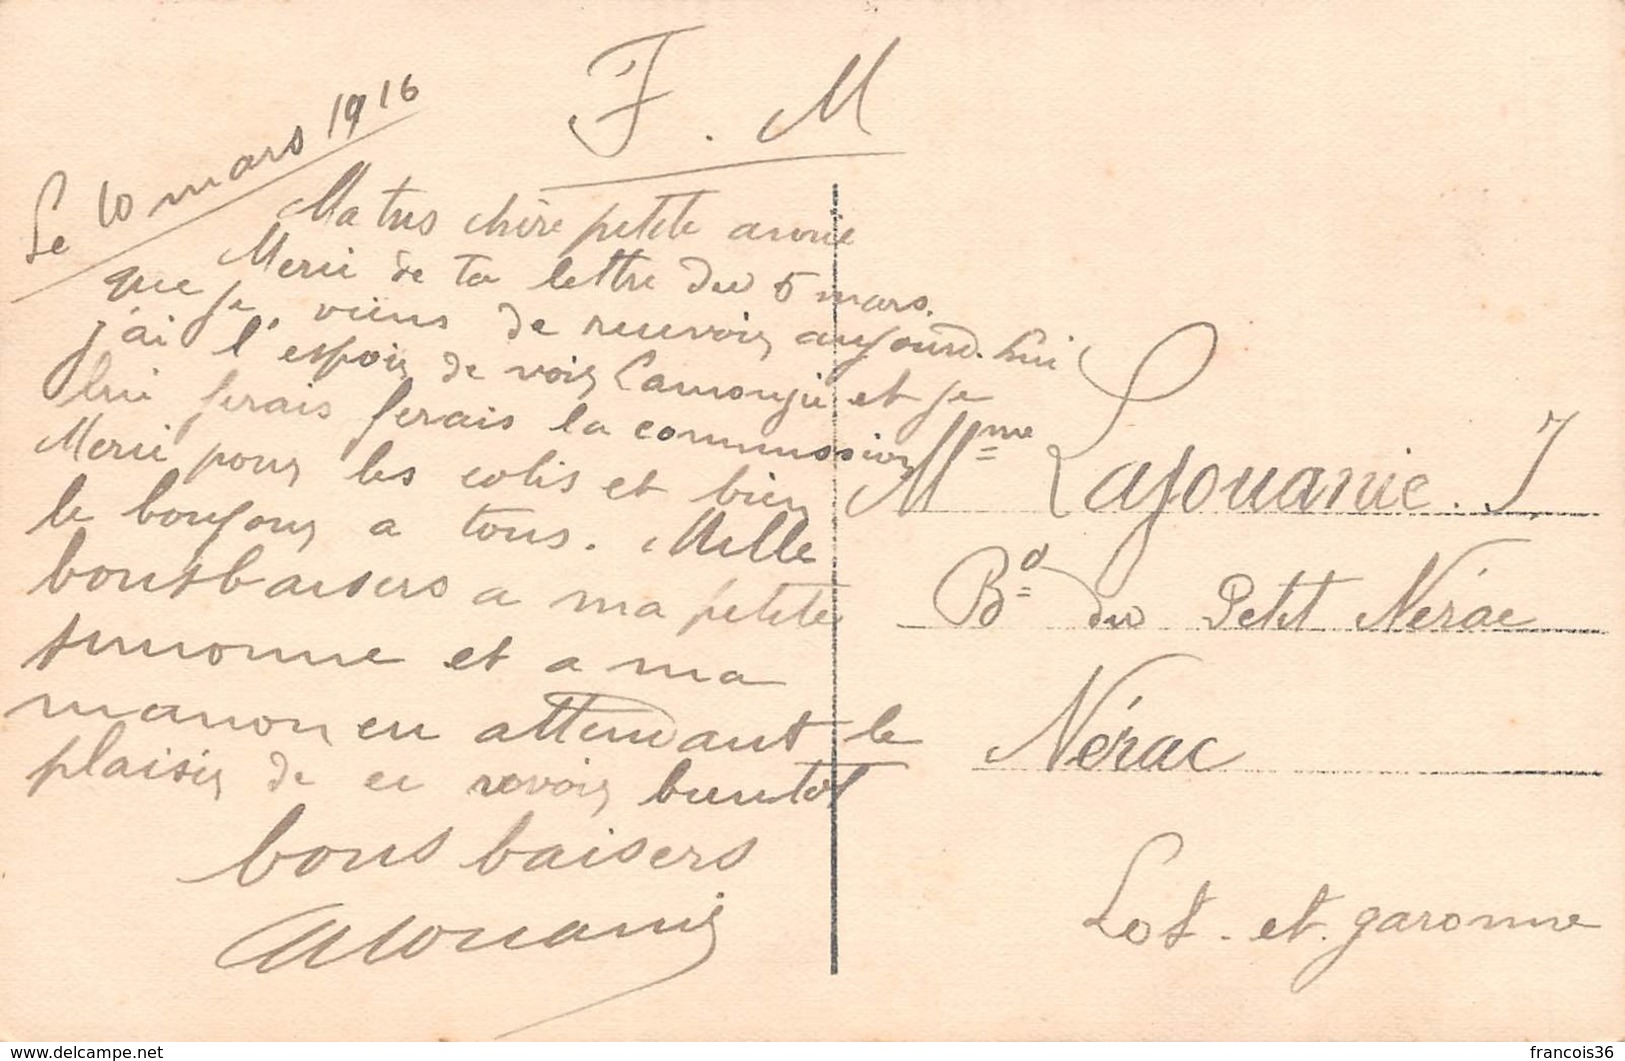 F. M
Le 10 mars 1916
Ma tres chère petite amie
Merci de ta lettre du 5 mars.
que je viens de recevoir aujourd.hui
j'ai l'espoir de voir Lamougie et je
lui ferais ferais la commission
Merci pour les colis et bien
le bonjour a tous. Mille
bons baisers a ma petite
simonne et a ma
manon en attendant le
plaisir de ce revoir bientot
bons baisers
Lajouanie
Mme Lajouanie. J.
Bd du Petit Nérac
Nérac
Lot-et-garonne
www.delcampe.net
francois36